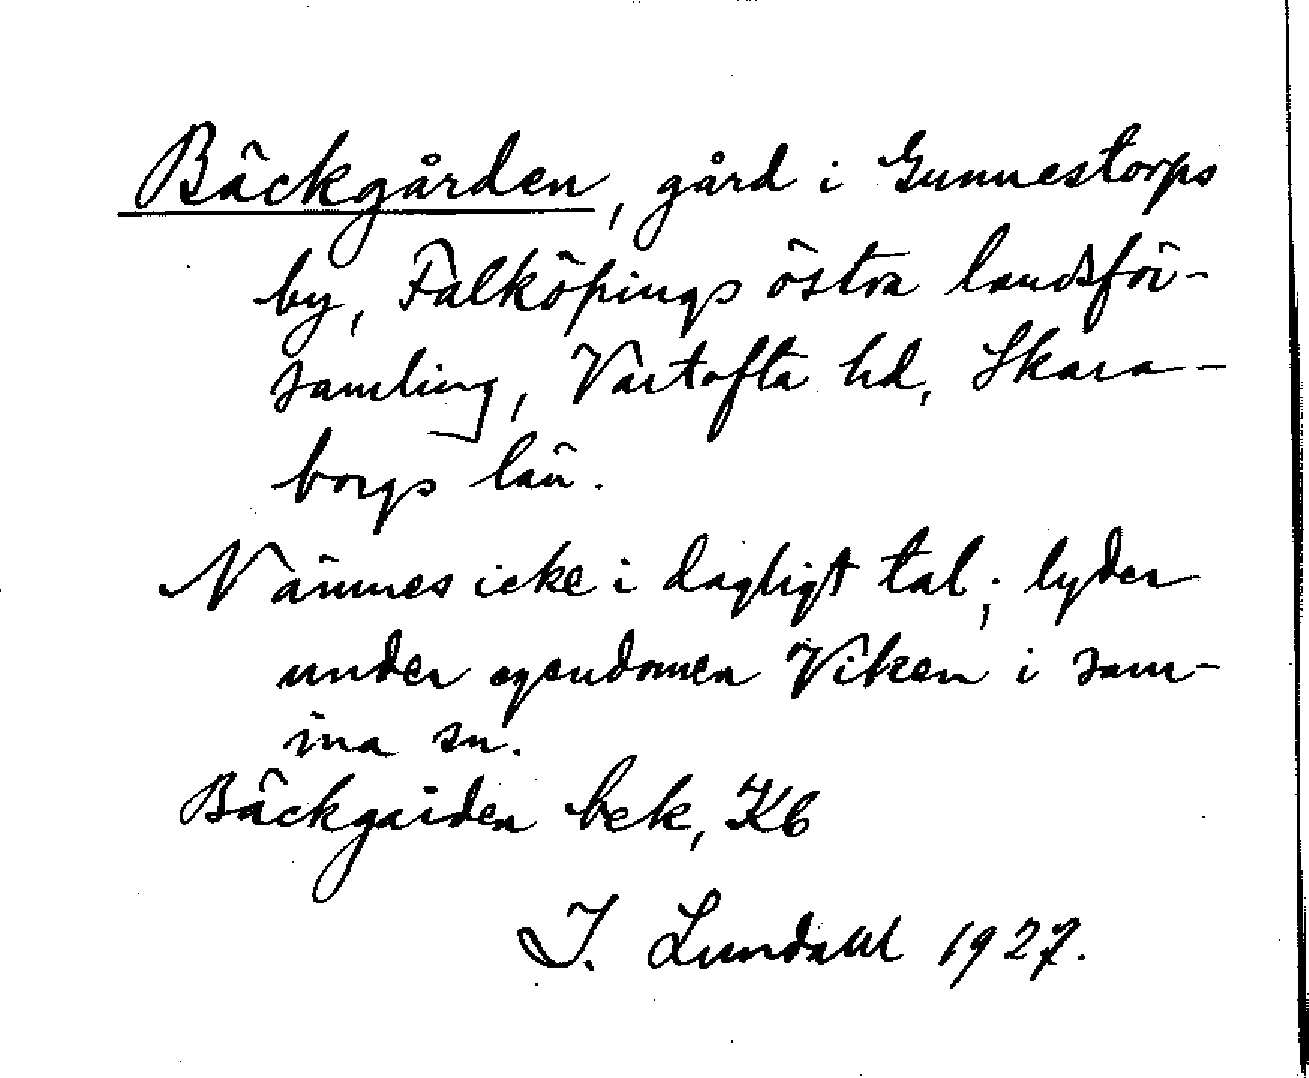 Bäckgården, gård i Gunnestorps
by, Falköpings östra landsför-
samling, Vartofta hd, Skara-
borgs län.
Nämnes icke i dagligt tal; lyder
under egendomen Viken i sam-
ma sn.
Bäckgården bek, Kb
I. Lundahl 1927.